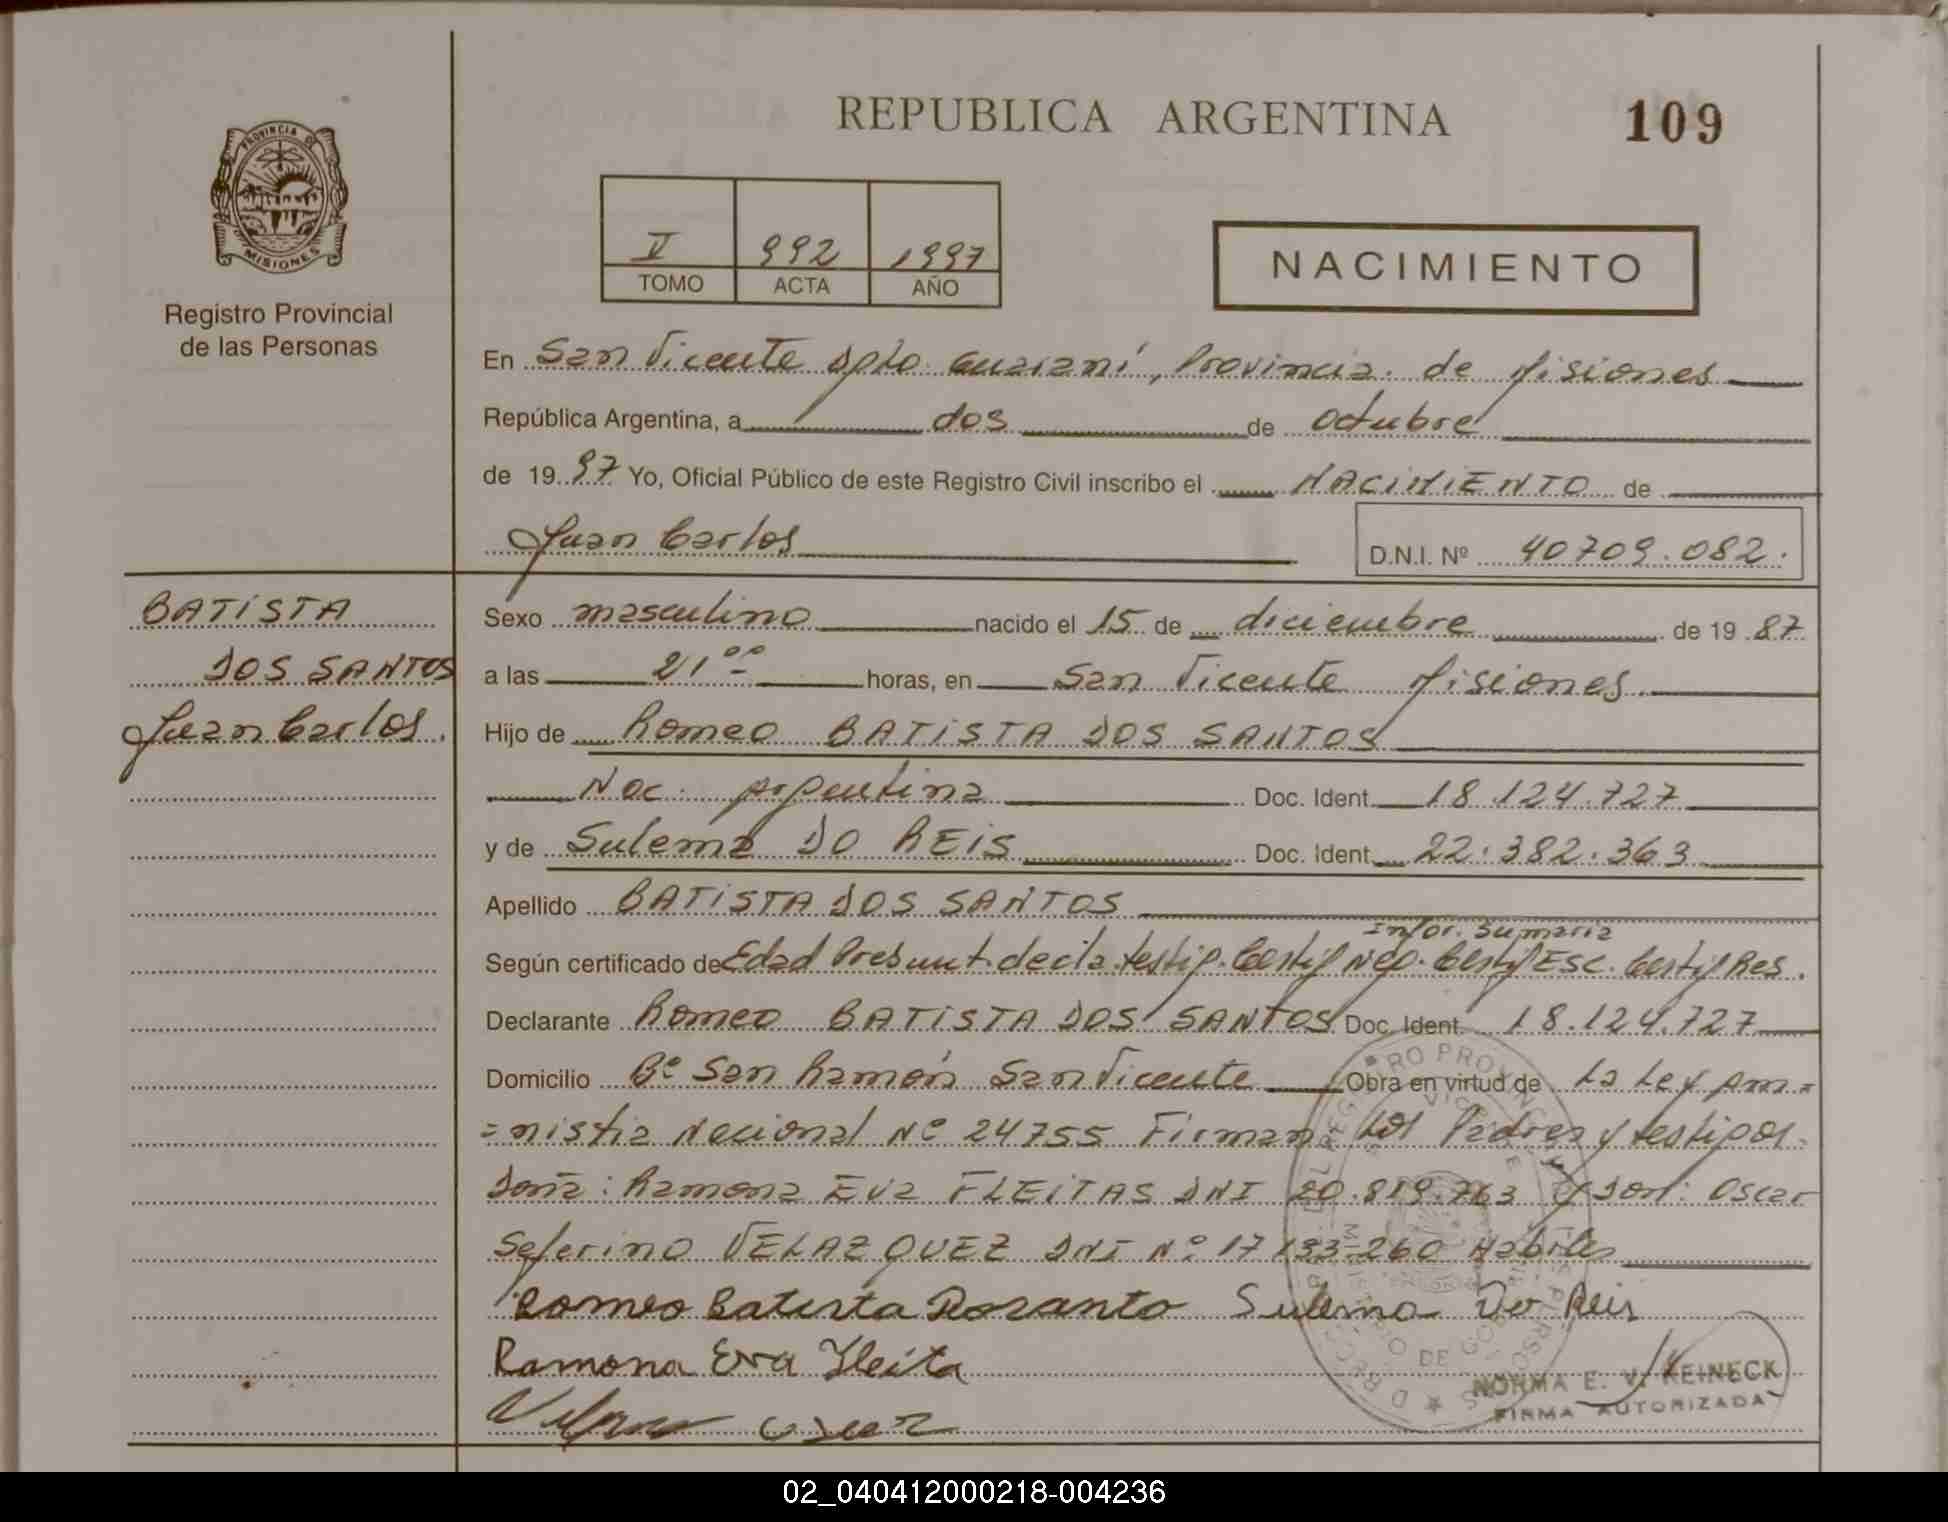 REPUBLICA ARGENTINA
109
PROVINCIA DE MISIONES
Registro Provincial
de las Personas
V 992 1997
TOMO ACTA AÑO
NACIMIENTO
En San Vicente Dpto. Guaraní, Provincia de Misiones
República Argentina, a dos de octubre
de 1997 Yo, Oficial Público de este Registro Civil inscribo el NACIMIENTO de
Juan Carlos
D.N.I. Nº 40709.082.
BATISTA
DOS SANTOS
Juan Carlos.
Sexo masculino nacido el 15 de diciembre de 1987
a las 21ºº horas, en San Vicente Misiones.
Hijo de Romeo BATISTA DOS SANTOS
Nac. Argentina Doc. Ident. 18.124.727
y de Sulema DO REIS Doc. Ident. 22.382.363
Apellido BATISTA DOS SANTOS
Infor. Sumaria
Según certificado de Edad Presunt. decla. testig. Certif Neg. Certif Esc. Certif Res.
Declarante Romeo BATISTA DOS SANTOS Doc. Ident. 18.124.727
Domicilio Bº San Ramón San Vicente Obra en virtud de La Ley Am=
=nistia Nacional Nº 24755 Firman los Padres y testigos.
Doña: Ramona Eva FLEITAS DNI 20.819.763 y Don: Oscar
Seferino VELAZQUEZ DNI Nº 17.133.260 Habiles
Romeo Batista Dosanto Sulema Do Reis
Ramona Eva Fleita
NORMA E. V. REINECK
FIRMA AUTORIZADA
02_040412000218-004236